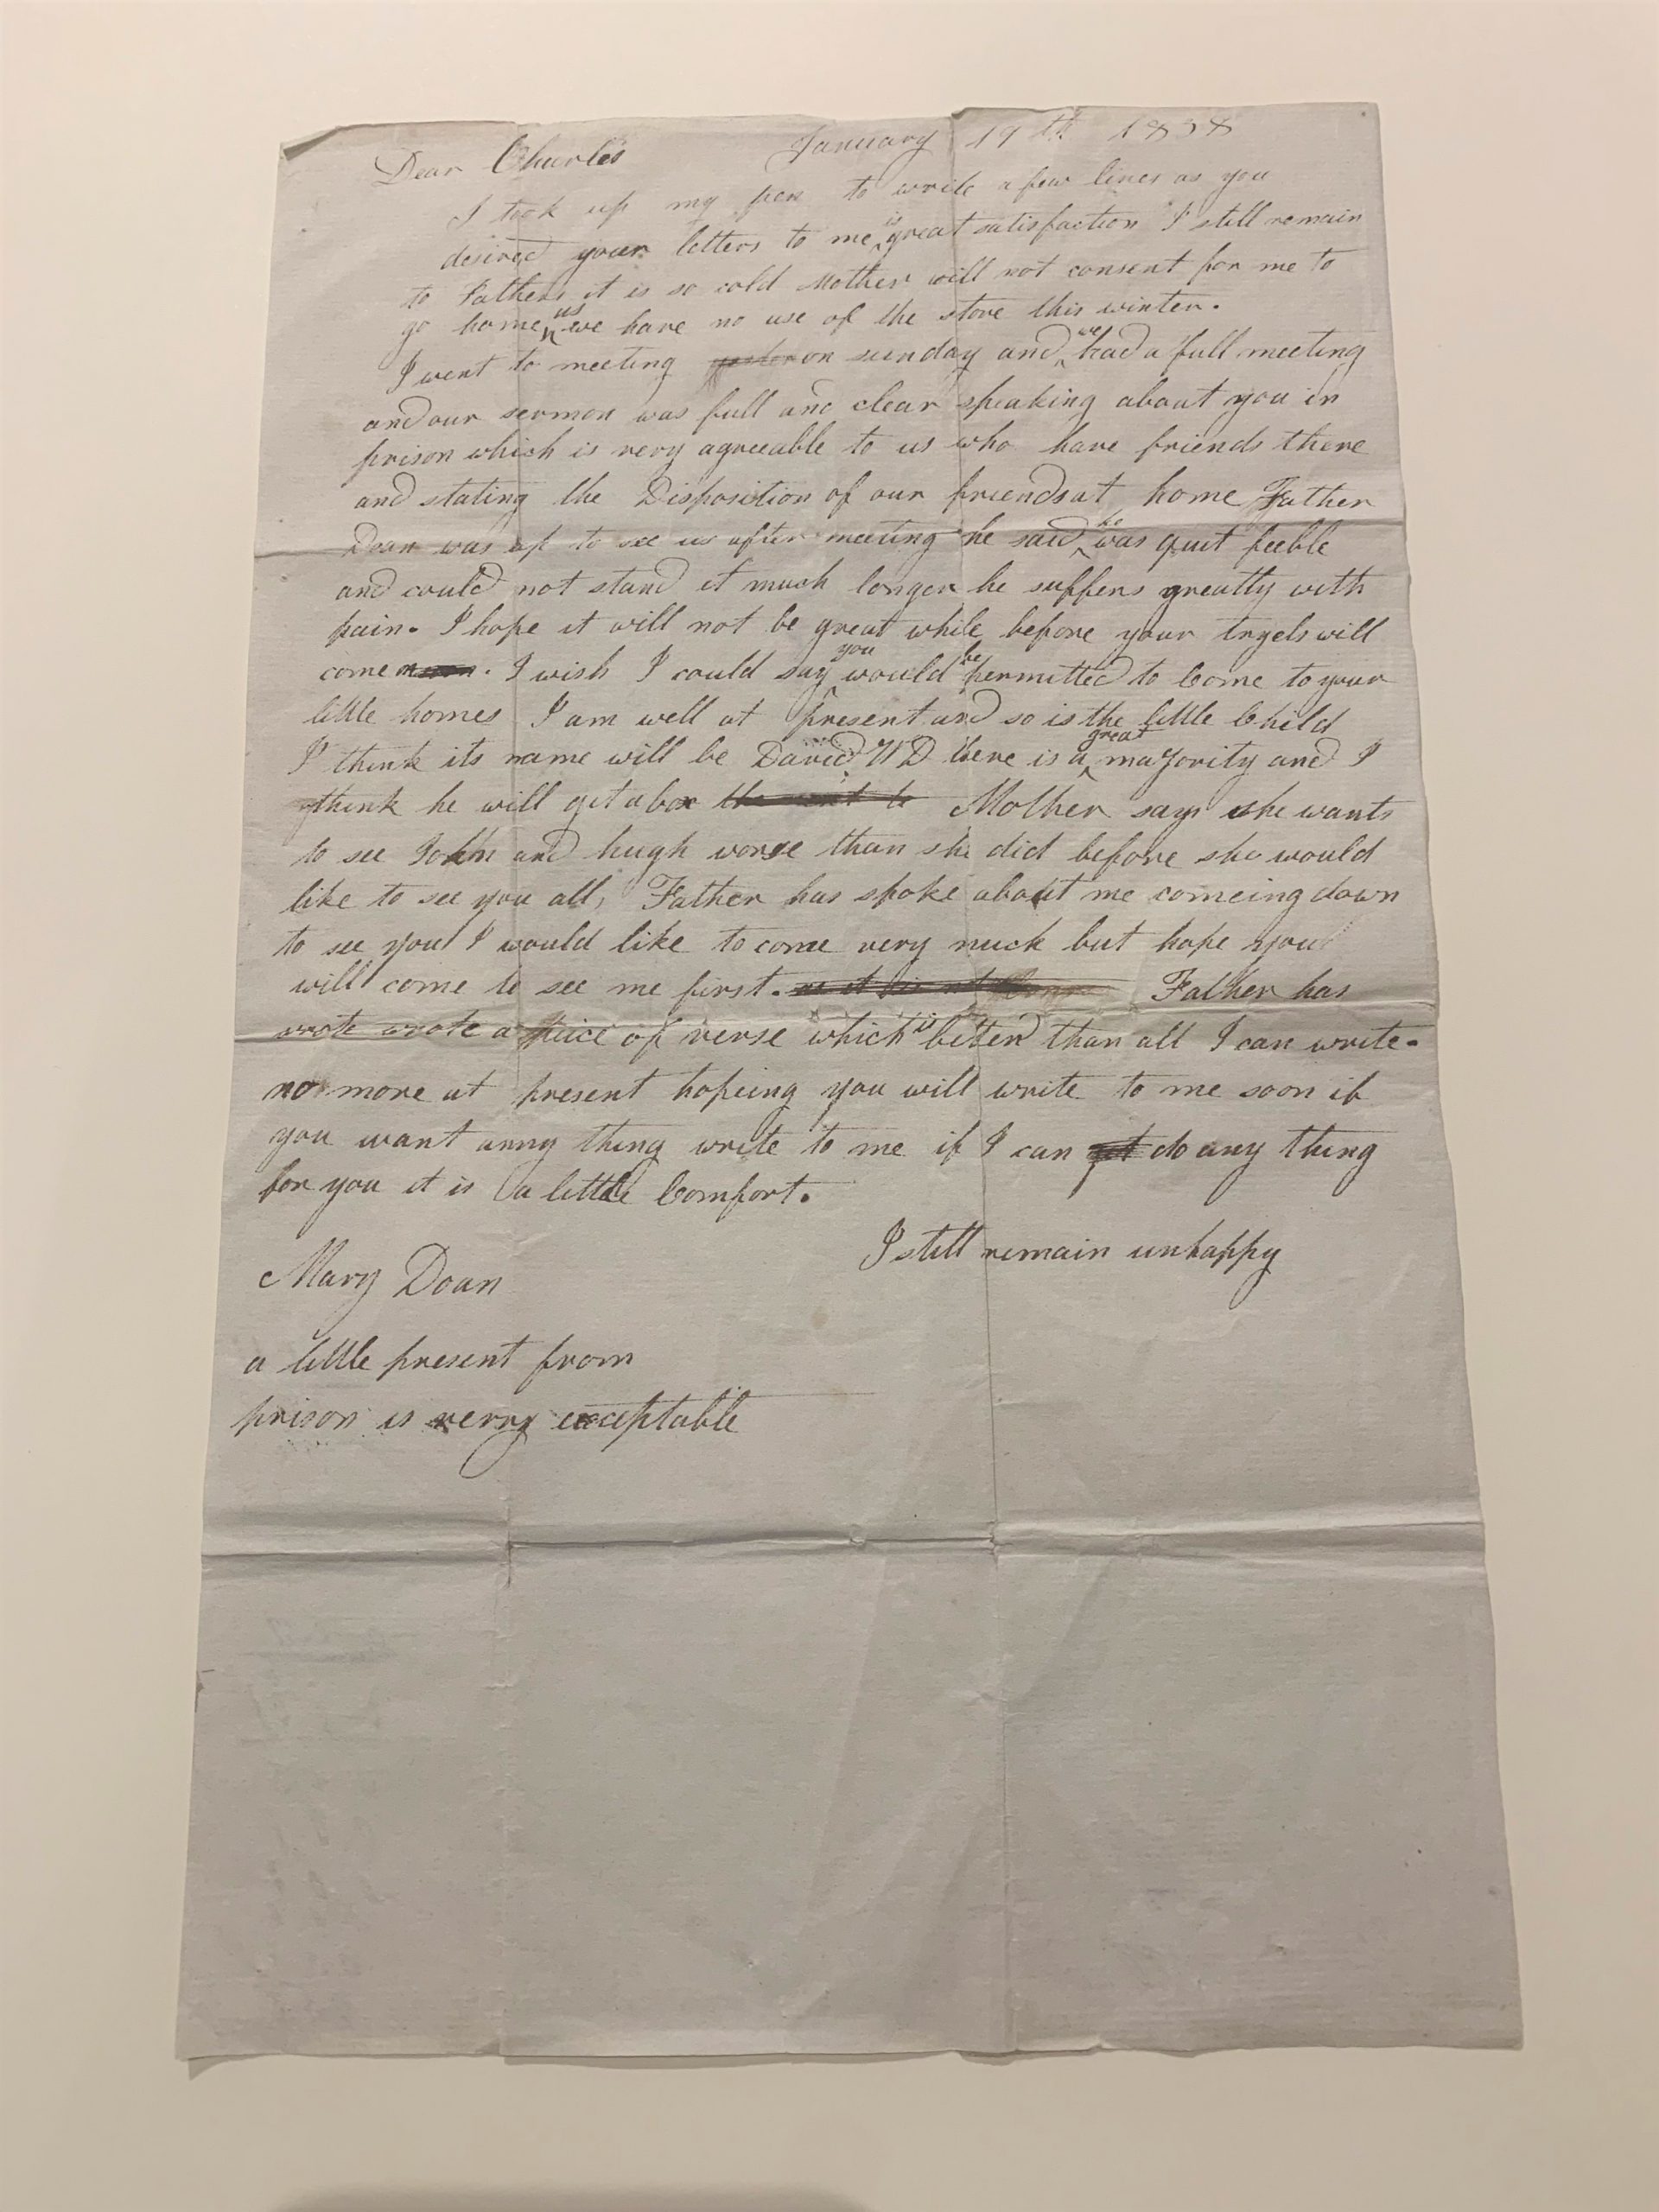 January 19th 1838
Dear Charles
I took up my pen to write a few lines as you
desired your letters to me is great satisfaction I still remain
to Fathers it is so cold Mother will not consent for me to
go home as we have no use of the stove this winter.
I went to meeting on sunday and we had a full meeting
and our sermon was full and clear speaking about you in
prison which is very agreeable to us who have friends there
and stating the Disposition of our friends at home Father
Doan was up to see us after meeting he said he was quit feeble
and could not stand it much longer he suffers greatly with
pain. I hope it will not be great while before your tryels will
come. I wish I could say you would be permitted to Come to your
little homes I am well at present and so is the little Child
I think its name will be David WD there is a great majority and I
think he will get a box Mother says she wants
to see John and hugh worse than she did before she would
like to see you all, Father has spoke about me comeing down
to see you I would like to come very much but hope you
will come to see me first. Father has
wrote wrote a peice of verse which is better than all I can write.
no more at present hopeing you will write to me soon if
you want anny thing write to me if I can do any thing
for you it is a little Comfort.
I still remain unhappy
Mary Doan
a little present from
prison is verry exceptable